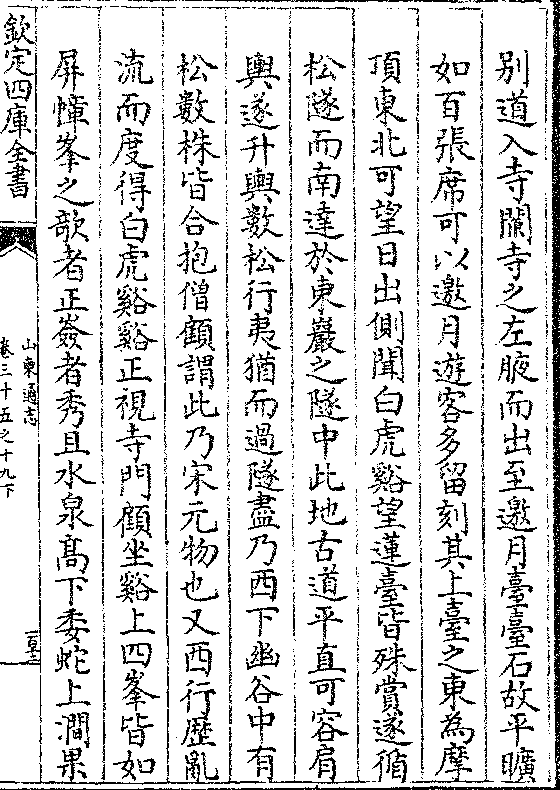 别道入寺闌寺之左腋而出至邀月臺臺石故平曠
如百張席可以邀月遊客多留刻其上臺之東為摩
頂東北可望日出側聞白虎谿望蓮臺皆殊賞遂循
松隧而南達於東巖之隧中此地古道平直可容肩
輿遂升輿數松行夷猶而過隧盡乃西下幽谷中有
松數株皆合抱僧顧謂此乃宋元物也又西行歴亂
流而度得白虎谿谿正視寺門顧坐谿上四峯皆如
屏幛峯之欹者正崟者秀且水泉髙下委蛇上澗果
欽定四庫全書
山東通志
卷三十五之十九下